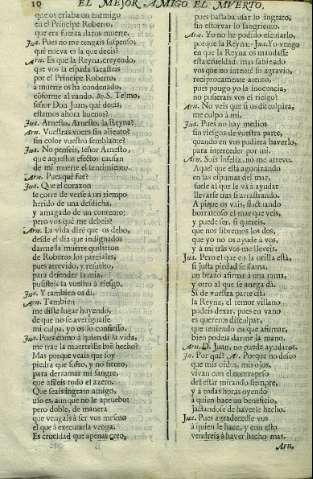 10 EL MEJOR AMIGO EL MVERTO.
que os erlaba vn enemigo
en el Principe Roberto,
que era fuerza daros muerte.
Jua. Pues no me tengais suspenso,
qui nueva es la que decis?
Arn. Es que la Reyna, creyendo,
que vos la espada sacasteis
por el Principe Roberto,
à muerte os ha condenado,
señor Don Juan, què decis,
estamos ahora buenos?
Jua. Arnesto, Arnesto, la Reyna?
Arn. Vuestras voces sin aliento?
sin color vuestro semblante?
Jua. No penseis, señor Arnesto,
que aquestos efectos causan
de mi muerte el sentimiento.
Arn. Pues què fue?
Jua. Que el corazon
se corre de verse à vn tiempo
herido de vna desdicha,
y amagado de vn contento;
pero vos què me debeis?
Arn. La vida dirè que os debo,
desde el dia que indignados
darme la muerte quisieron
de Roberto los parciales,
pues atrevido, y resuelto,
para defender la mia,
pusisteis la vuestra à riesgo.
Jua. Y tambien os di.
Arn. Tambien
me disteis lugar huyendo,
de que no se averiguasse
mi culpa, yo os lo confiesso.
Jua. Pues como à quien diò la vida,
me trae la muerte
Mas porque veais que soy
piedra que sufro, y no siento,
para derramar mi sangre
Que seais ingrato amigo,
esso es, aunque no le apruebo
pero doble, de manera
que vengais à ser vos mesmo
el que à executarla venga,
Es crueldad que apenas creo,
pues bastaba
sin estorvar lo sangriento.
Arn. Yo no he podido escusarlo,
porque la Reyna. Jua. Yo vengo
en que la Reyna os mandasse
esta crueldad, mas sabiendo
vos que no intento
reciprocamente amigo,
pues pongo yo la inocencia,
no pusierais vos el ruego?
Arn. No veis que si os disculpàra,
me culpo à mi.
Jua. Pues no hay medios
sin riesgos de vuestra parte,
quando en vos pudiera haverlo,
para interceder por mi.
Arn. Sois infeliz, no me atrevo.
Aquel que està agonizando
en las espumas del mar,
suele al que le và à ayudar
llevarse tras si arrastrando.
A pique os vais, fluctuando
borrascoso el mar que veis,
y puede ser, si quereis,
que nos ahoguemos los dos,
que yo no os ayude à vos,
y à mi tras vos me lleveis.
Jua. Pero el que en la orilla està,
si justa piedad le llama,
vn brazo afirma à vna rama,
y otro al que se anega dà.
Si de vuestra parte està
la Reyna, el temor villano
podeis dexar, pues es vano
que teniendo en que afirmar,
bien podeis darme la mano.
Arn. D. Juan, no puedo ayudaros.
Ju. Por què? Ar. Porque no deseo
que mis oidos, mis ojos,
vivan con el
de estar mirando siempre,
y à todas horas oyendo
à quien hace vn beneficio,
jactandose de haverle hecho.
Jua. Pues agradecedle vos
à quien le hace, y con esto
vendreis à haver hecho mas.
Arn.